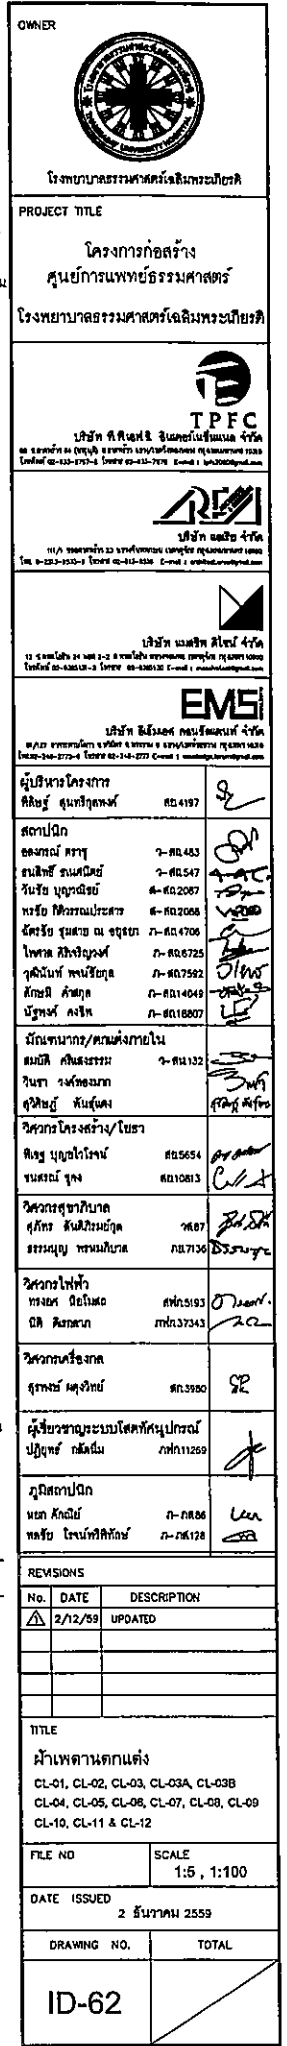 OWNER
THAMMASAT UNIVERSITY HOSPITAL
โรงพยาบาลธรรมศาสตร์เฉลิมพระเกียรติ
PROJECT TITLE
โครงการก่อสร้าง
ศูนย์การแพทย์ธรรมศาสตร์
โรงพยาบาลธรรมศาสตร์เฉลิมพระเกียรติ
TPFC
บริษัท ที.พี.เอฟ.ซี. อินเตอร์เนชั่นแนล จำกัด
บริษัท แอเรีย จำกัด
บริษัท แมสซิฟ ดีไซน์ จำกัด
EMS
บริษัท อีเอ็มเอส คอนซัลแตนท์ จำกัด
ผู้บริหารโครงการ
พิสิษฐ์ สุนทรีกุลพงศ์ สถ.4197
สถาปนิก
อลงกรณ์ ดราชู ว-สถ.483
ธนสิทธิ์ ธนศนิตย์ ว-สถ.547
วันชัย บุญวณิชย์ ส-สถ.2087
พรชัย กิติวรรณประสาร ส-สถ.2088
ฉัตรชัย ชุมสาย ณ อยุธยา ภ-สถ.4706
ไพศาล ศิริเจริญวงศ์ ภ-สถ.6725
วุฒินันท์ พจน์ชัยกุล ภ-สถ.7592
ลักษมี คำสกุล ภ-สถ.14049
ณัฐพงศ์ คงรัก ภ-สถ.16807
มัณฑนากร/ตกแต่งภายใน
สมบัติ ศรีแสงธรรม ว-สน.132
วินธา วงค์ทองมาก
สุวิศิษฏ์ พันธุ์แดง
วิศวกรโครงสร้าง/โยธา
พิเชฐ บุญชไวโรจน์ สย.5654
ชนสรณ์ ชูคง สย.10813
วิศวกรสุขาภิบาล
สุภัทร ตันติภิรมย์กุล วส.87
ธรรมนูญ พรหมภิบาล ภย.7136
วิศวกรไฟฟ้า
ทรงยศ นิยโมสถ สฟก.5193
นิติ ภฟก.37343
วิศวกรเครื่องกล
สุรพงษ์ ผดุงวิทย์ สก.3980
ผู้เชี่ยวชาญระบบโสตทัศนูปกรณ์
ปฏิยุทธ์ กลัดนิ่ม ภฟก.11269
ภูมิสถาปนิก
หยก ภักณีย์ ภ-ภส.86
พลชัย โรจน์ทวีพิทักษ์ ภ-ภส.128
REVISIONS
No. DATE DESCRIPTION
1 2/12/59 UPDATED
TITLE
ฝ้าเพดานตกแต่ง
CL-01, CL-02, CL-03, CL-03A, CL-03B
CL-04, CL-05, CL-06, CL-07, CL-08, CL-09
CL-10, CL-11 & CL-12
FILE NO SCALE
1:5 , 1:100
DATE ISSUED
2 ธันวาคม 2559
DRAWING NO. TOTAL
ID-62